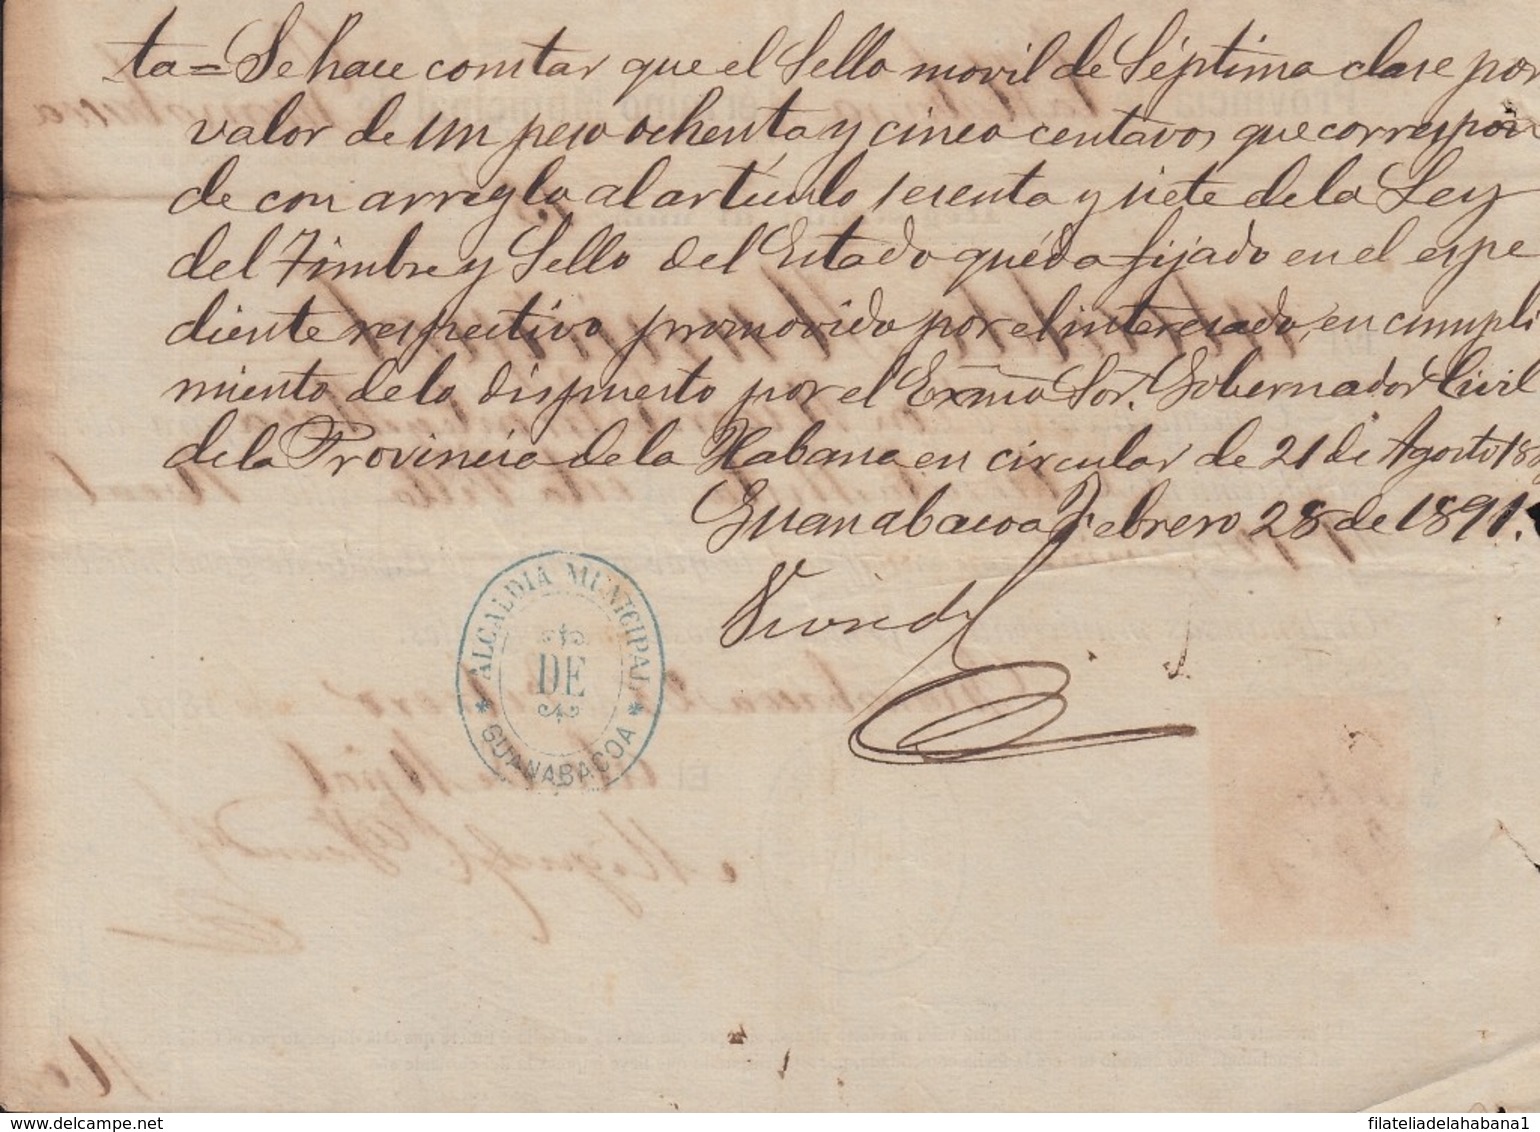 ta = Se hace constar que el Sello movil de Séptima clase por
valor de un peso ochenta y cinco centavos que correspon
de con arreglo al artículo sesenta y siete de la Ley
del Timbre y Sello del Estado quéda fijado en el espe
diente respectivo promovido por el interesado, en cumpli
miento de lo dispuesto por el Exmo Sor. Gobernador Civil
de la Provincia de la Habana en circular de 21 de Agosto
Guanabacoa Febrero 28 de 1891.
ALCALDIA MUNICIPAL
DE
* GUANABACOA *
www.delcampe.net
filateliadelahabana1